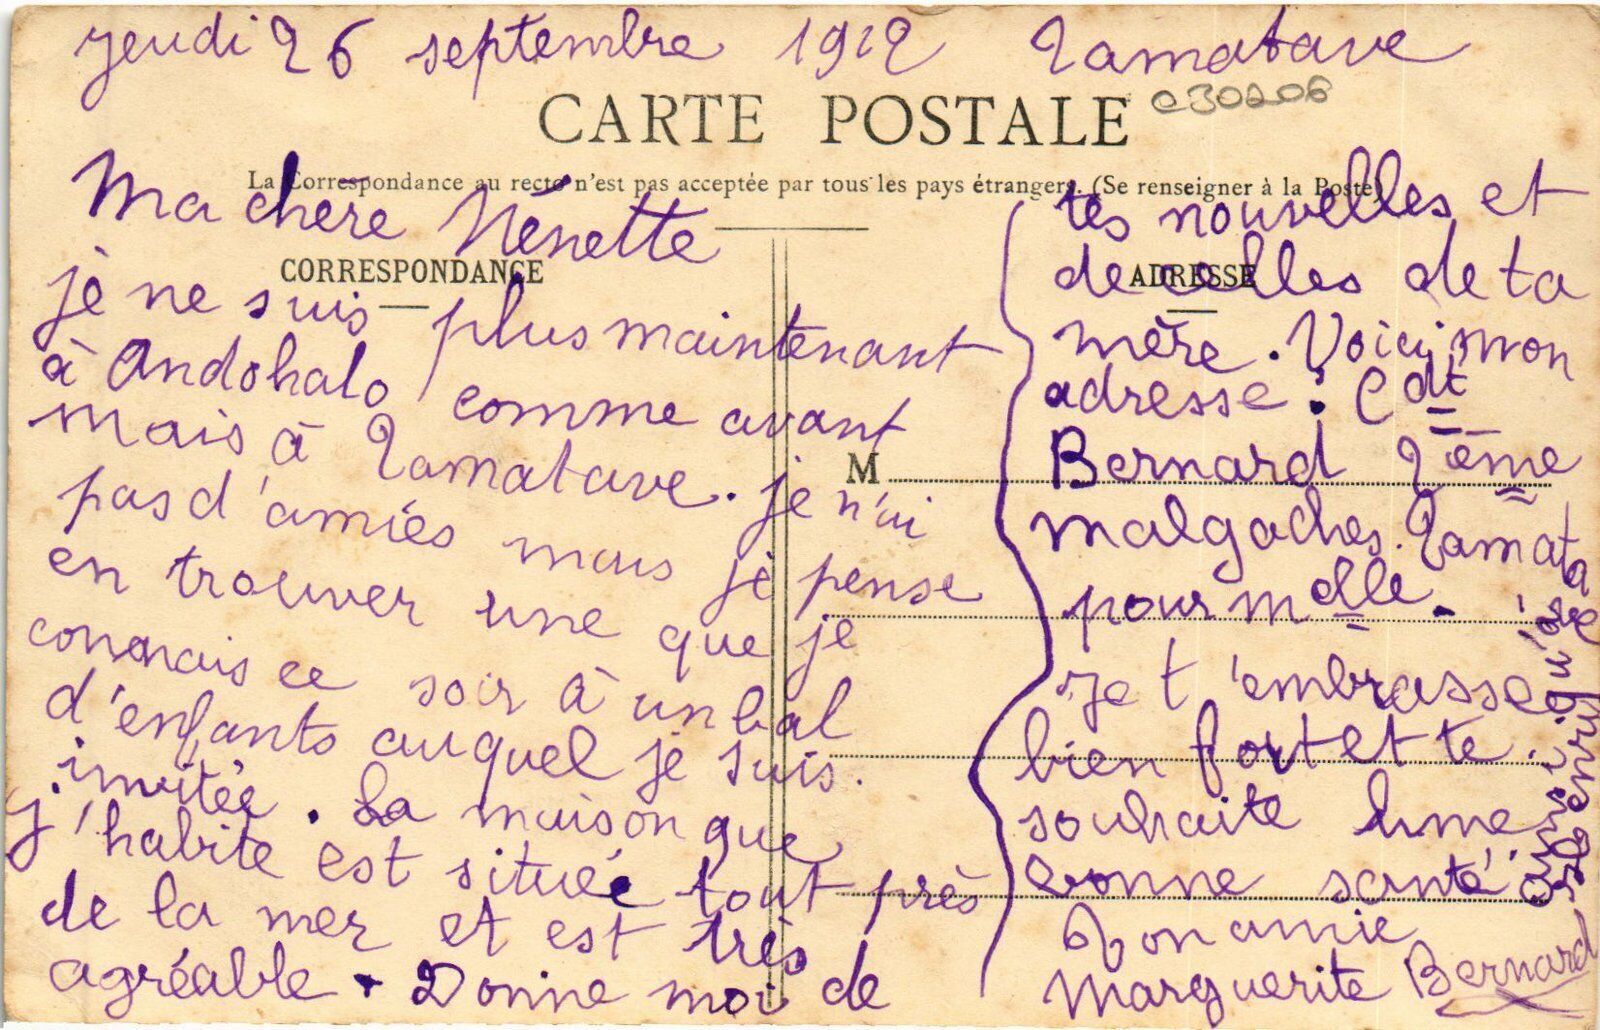 Jeudi 26 septembre 1912 Tamatave
CARTE POSTALE
c30206
La Correspondance au recto n'est pas acceptée par tous les pays étrangers. (Se renseigner à la Poste)
CORRESPONDANCE
Ma chère Nénette
je ne suis plus maintenant
à Andohalo comme avant
mais à Tamatave. je n'ai
pas d'amies mais je pense
en trouver une que je
connais ce soir à un bal
d'enfants auquel je suis
invitée. La maison que
j'habite est située tout près
de la mer et est très
agréable. Donne moi de
ADRESSE
M
tes nouvelles et
de celles de ta
mère. Voici mon
adresse: Cdt
Bernard 2ème
malgaches. Tamatave
pour Mdlle.
Je t'embrasse
bien fort et te
souhaite une
bonne santé
ainsi qu'à
Ton amie
Marguerite Bernard